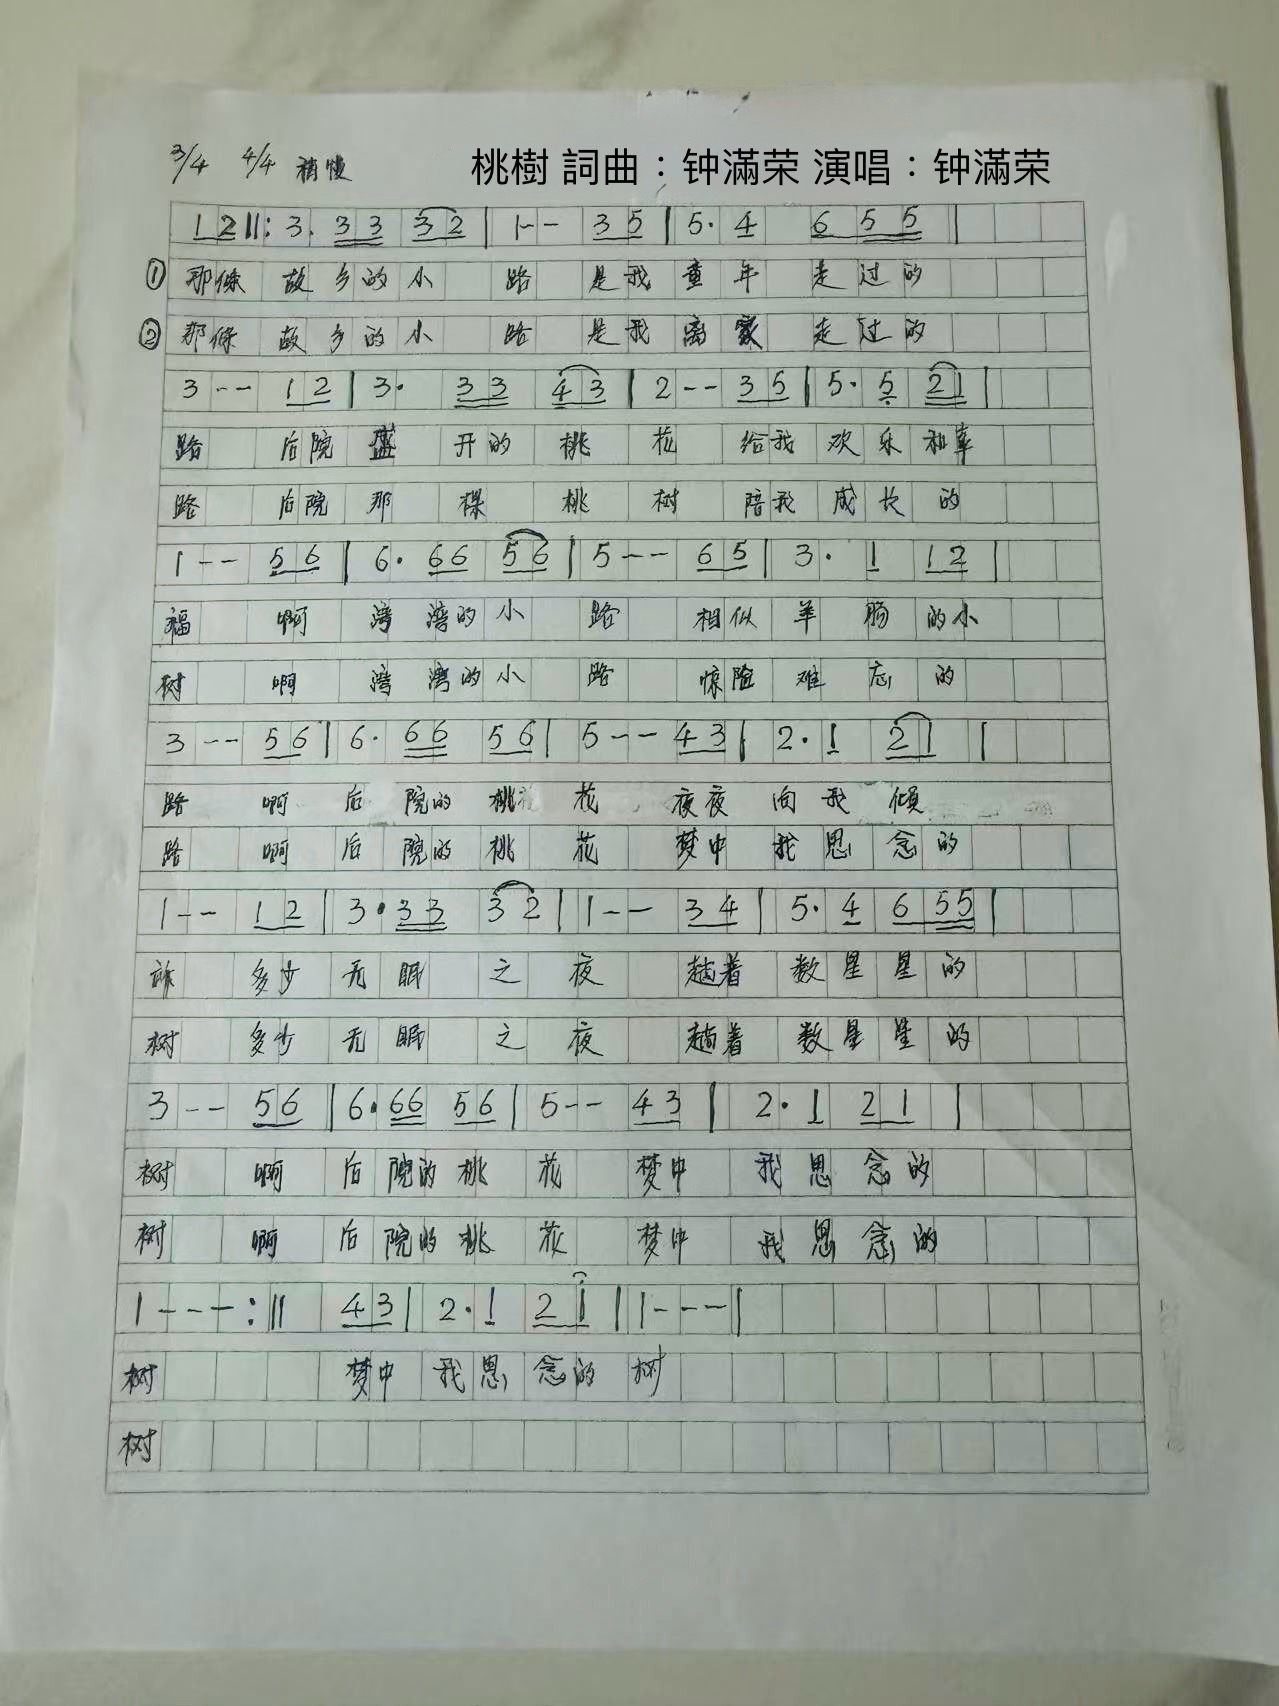 3/4 4/4 稍慢
桃樹 詞曲：钟滿荣 演唱：钟滿荣
1 2 ‖: 3. 3 3 3 2 | 1 - - 3 5 | 5. 4 6 5 5 |
① 那條 故乡的小 路 是我童年 走过的
② 那條 故乡的小 路 是我离家 走过的
3 - - 1 2 | 3. 3 3 4 3 | 2 - - 3 5 | 5. 5 2 1 |
路 后院盛 开的 桃 花 给我 欢乐和幸
路 后院那 棵 桃 树 陪我 成长的
1 - - 5 6 | 6. 6 6 5 6 | 5 - - 6 5 | 3. 1 1 2 |
福 啊 湾湾的小 路 相似羊肠的小
树 啊 湾湾的小 路 惊险难忘的
3 - - 5 6 | 6. 6 6 5 6 | 5 - - 4 3 | 2. 1 2 1 |
路 啊 后院的桃 花 夜夜向我倾
路 啊 后院的桃 花 梦中我思念的
1 - - 1 2 | 3. 3 3 3 2 | 1 - - 3 4 | 5. 4 6 5 5 |
诉 多少无眠 之 夜 趟着数星星的
树 多少无眠 之 夜 趟着数星星的
3 - - 5 6 | 6. 6 6 5 6 | 5 - - 4 3 | 2. 1 2 1 |
树 啊 后院的桃 花 梦中 我思念的
树 啊 后院的桃 花 梦中 我思念的
1 - - - :‖ 4 3 | 2. 1 2 1 | 1 - - - |
树 梦中 我思 念的 树
树